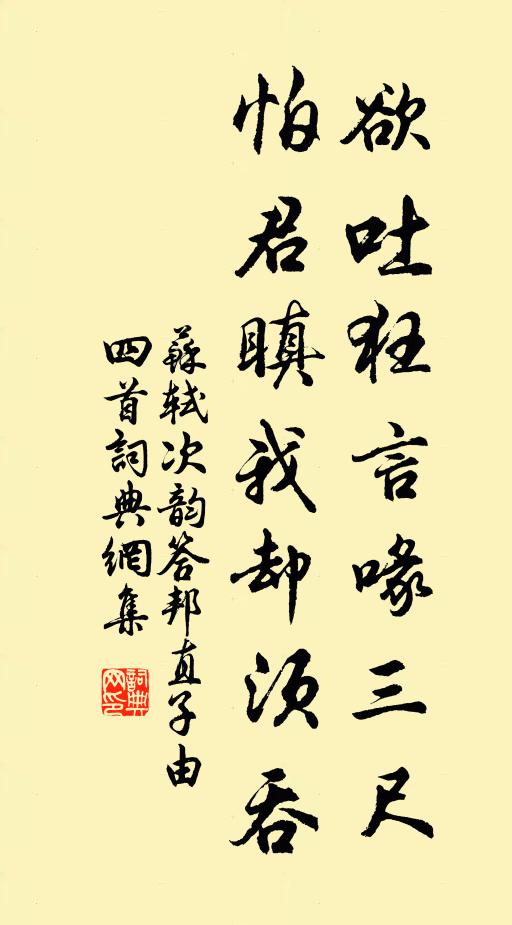 欲吐狂言喙三尺
怕君瞋我却須吞
蘇軾次韵答邦直子由
四首詞典網集
詞典
网印